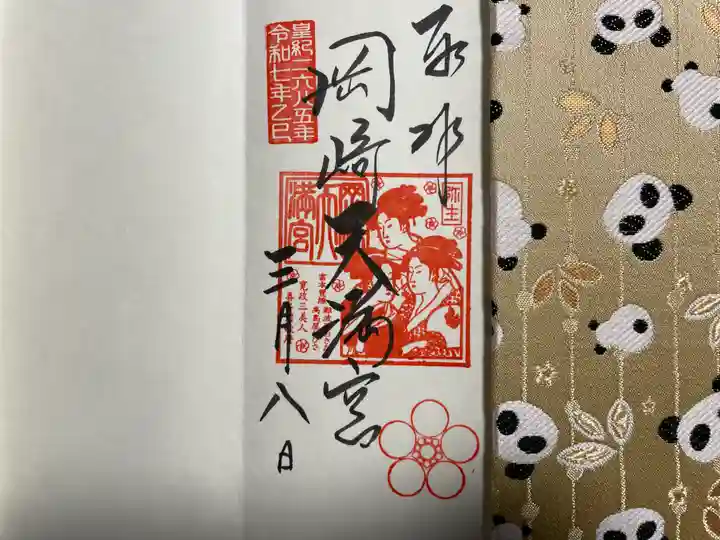 奉拝
岡崎天満宮
三月八日
皇紀二六八五年
令和七年乙巳
弥生
岡崎天満宮
富本豊雛
寛政三美人